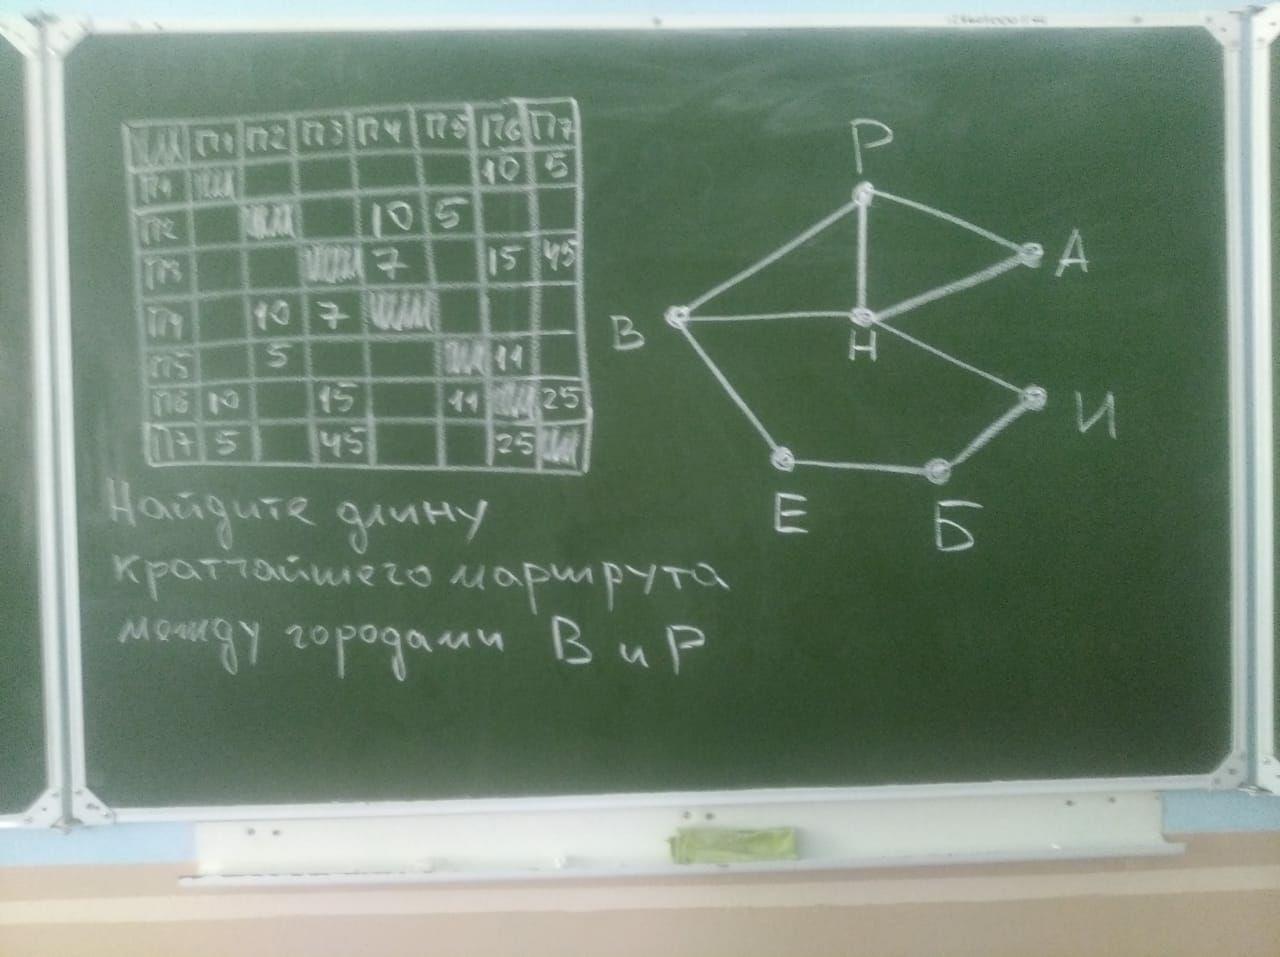 П1 П2 П3 П4 П5 П6 П7
П1 10 5
П2 10 5
П3 7 15 45
П4 10 7
П5 5 11
П6 10 15 11 25
П7 5 45 25
Найдите длину
кратчайшего маршрута
между городами В и Р
Р
А
В
Н
И
Е
Б